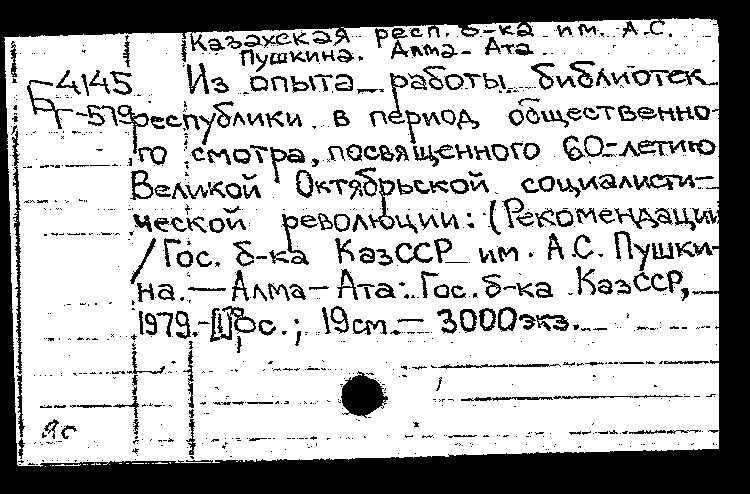 Казахская респ. б-ка им. А.С.
Пушкина. Алма-Ата
Б-4145 Из опыта работы библиотек
Г-579 республики в период общественно-
го смотра, посвященного 60-летию
Великой Октябрьской социалисти-
ческой революции: (Рекомендации
/Гос. б-ка КазССР им. А.С. Пушки-
на. — Алма-Ата: Гос. б-ка КазССР,
1979.- с.; 19см.— 3000экз.